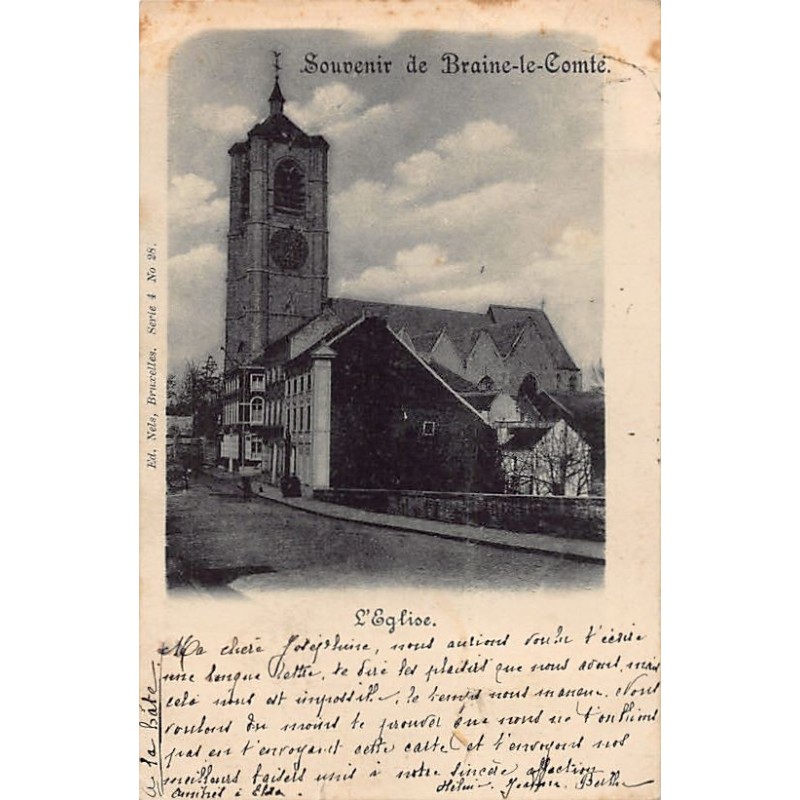 Souvenir de Braine-le-Comte.
Ed. Nels, Bruxelles. Serie 4 No 28.
L'Eglise.
Ma chère Joséphine, nous aurions voulu t'écrire
une longue lettre, te dire les plaisirs que nous avons, mais
cela nous est impossible, le temps nous manque. Nous
voulons du moins te prouver que nous ne t'oublions
pas en t'envoyant cette carte et t'envoyons nos
meilleurs baisers unis à notre sincère affection
Amitiés à Elsa. Jeanne, Berthe
A la hâte